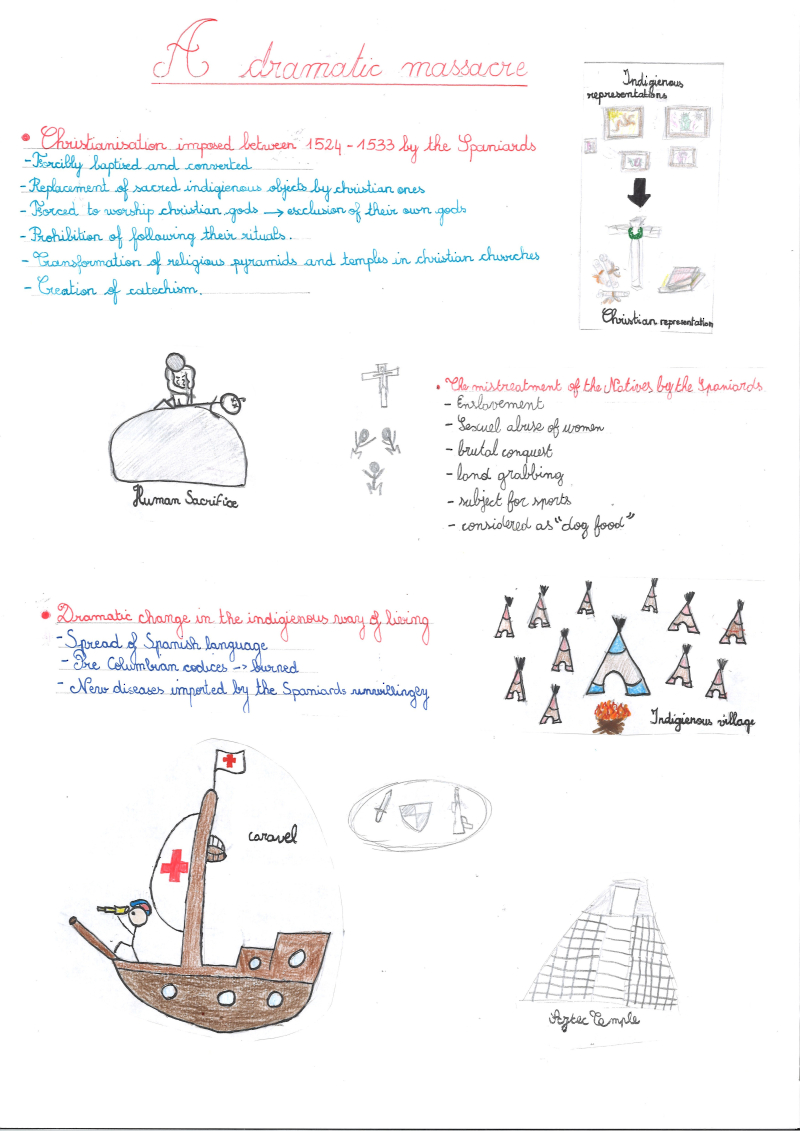 A dramatic massacre
Indigienous
representations
• Christianisation imposed between 1524 - 1533 by the Spaniards
- Forcilly baptised and converted
- Replacement of sacred indigienous objects by christian ones
- Forced to worship christian gods → exclusion of their own gods
- Prohibition of following their rituals.
- Transformation of religious pyramids and temples in christian churches
- Creation of catechism.
Christian representation
• The mistreatment of the Natives by the Spaniards
- Enslavement
- Sexuel abuse of women
- brutal conquest
- land grabbing
- subject for sports
- considered as "dog food"
Human Sacrifice
• Dramatic change in the indigienous way of living
- Spread of Spanish language
- Pre Columbian codices -> burned
- New diseases imported by the Spaniards unwillingly
Indigienous village
caravel
Aztec Temple